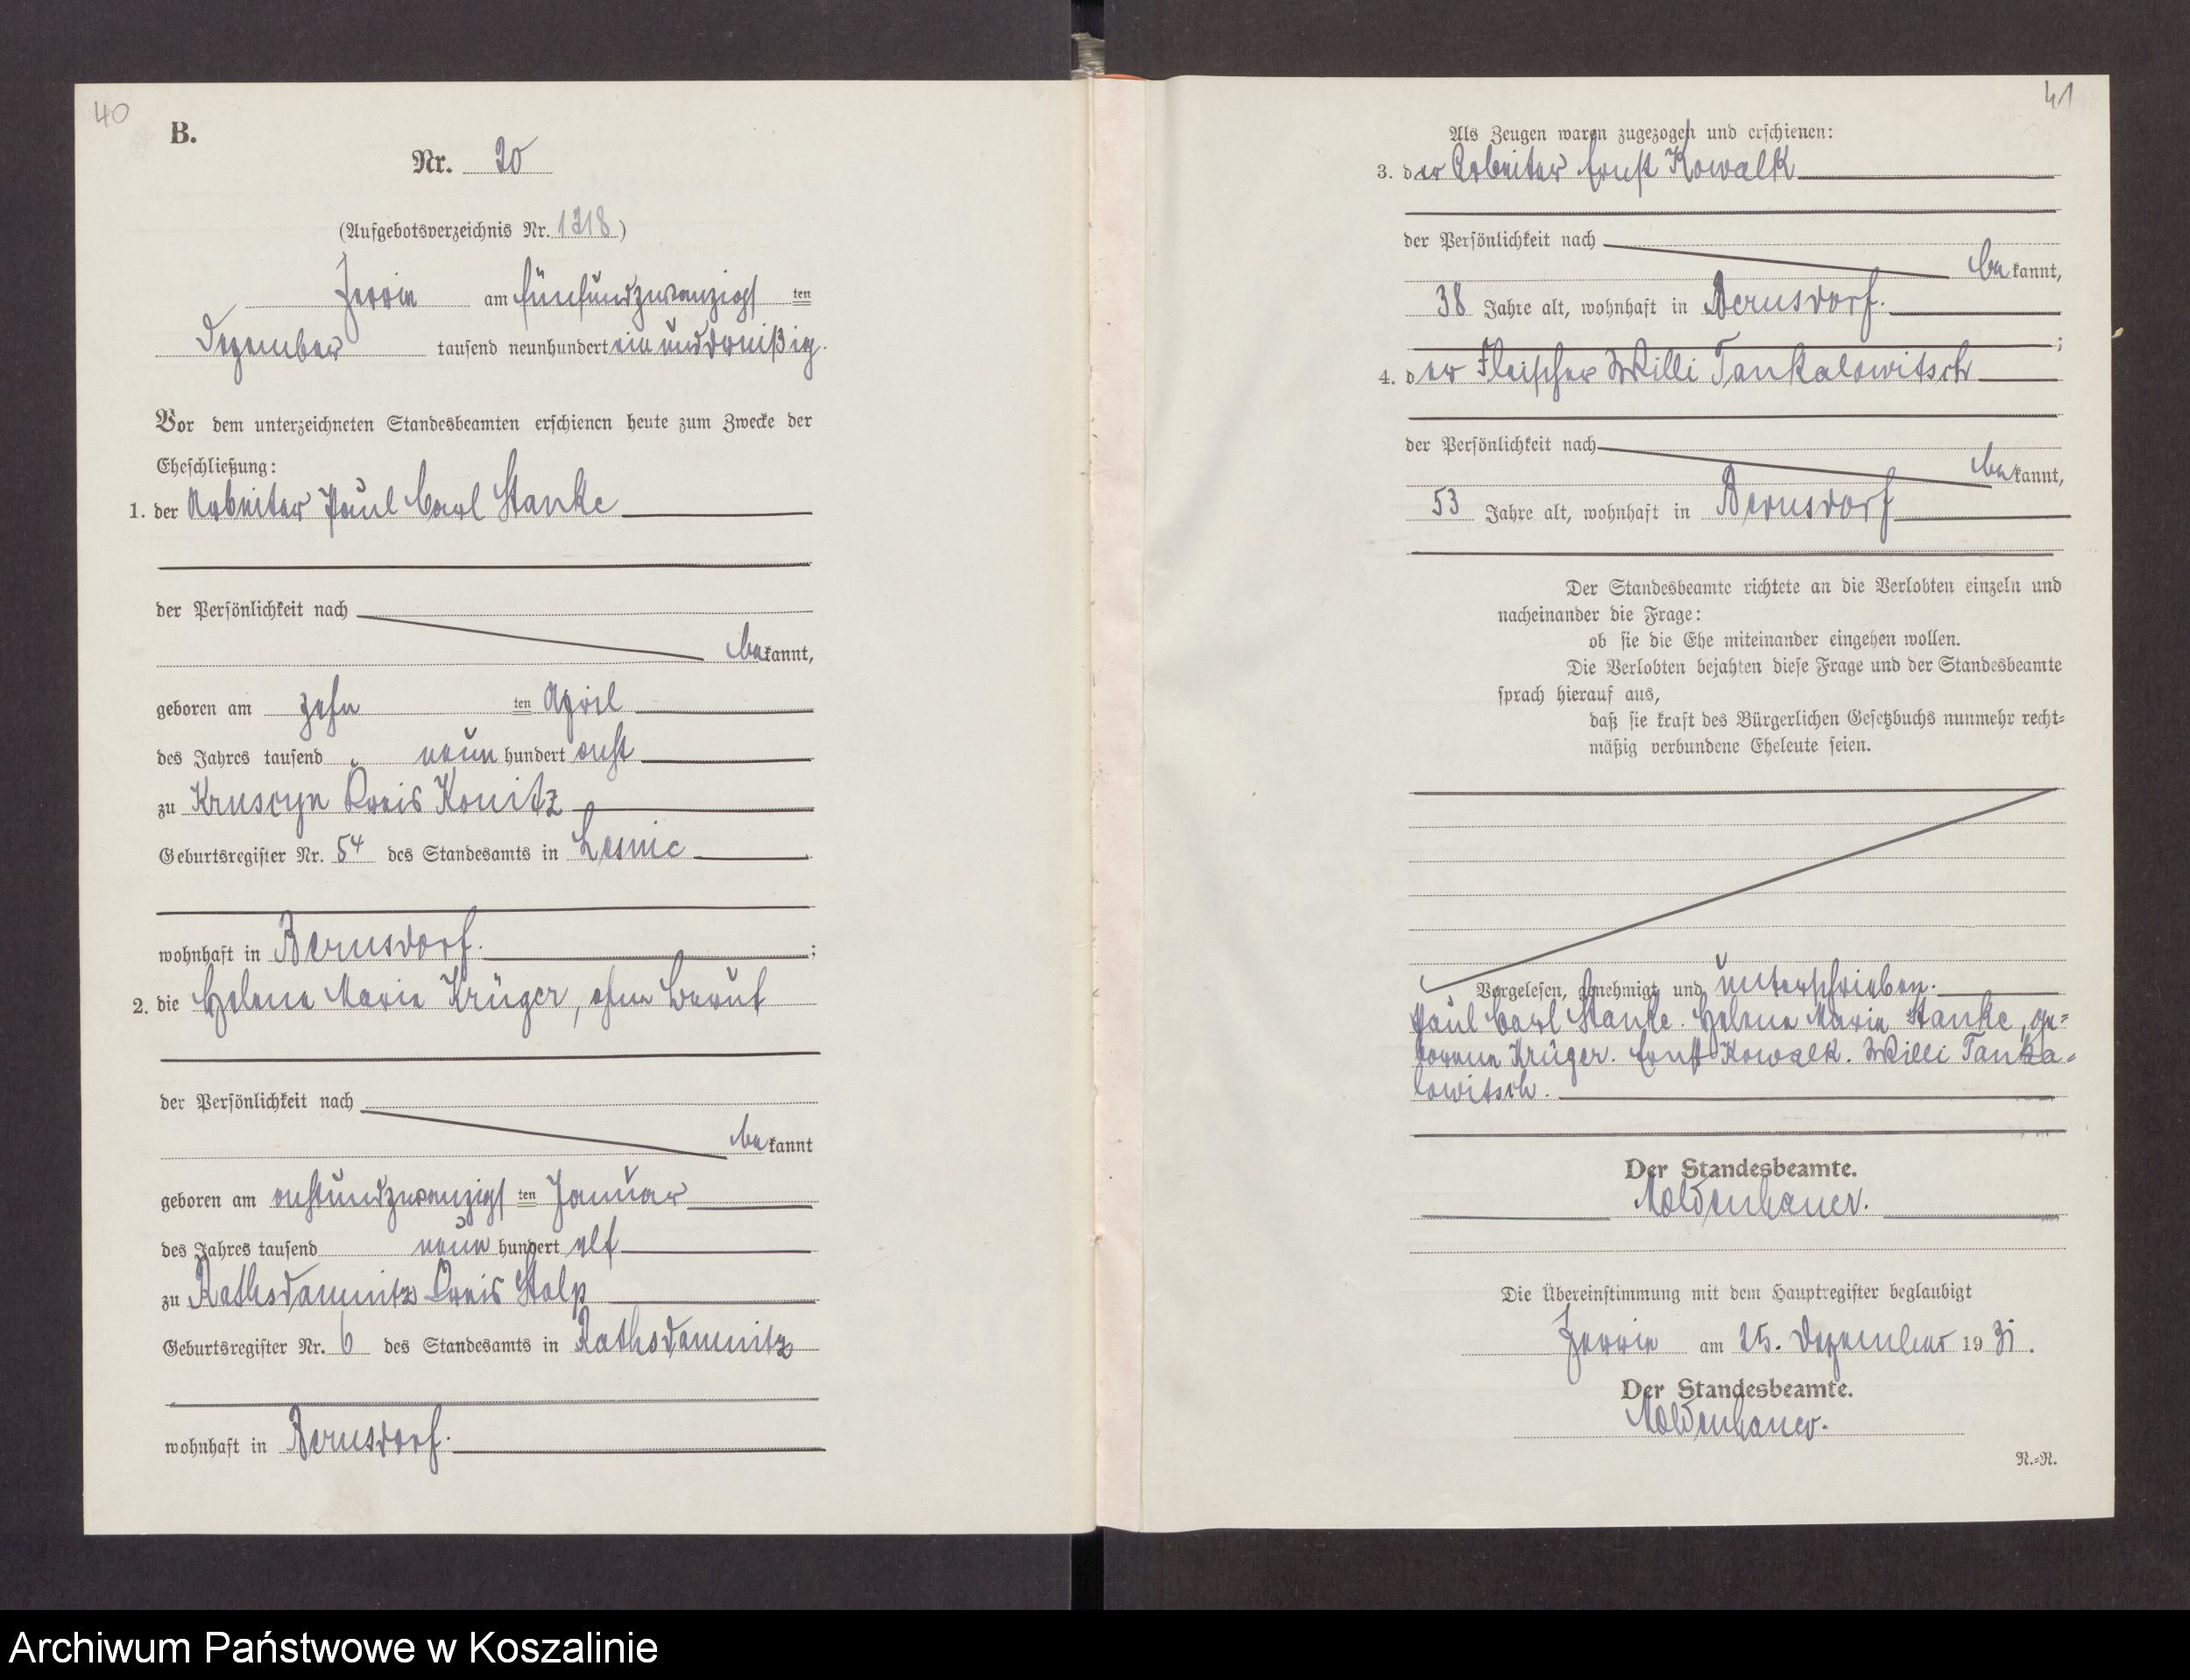 40
B.
Nr. 20
(Aufgebotsverzeichnis Nr. 1318)
Zerrin am fünfundzwanzigsten
Dezember tausend neunhundert einunddreißig.
Vor dem unterzeichneten Standesbeamten erschienen heute zum Zwecke der
Eheschließung:
1. der Arbeiter Paul Carl Stanke
der Persönlichkeit nach
bekannt,
geboren am zehnten April
des Jahres tausend neunhundert acht
zu Kruscyn Kreis Konitz
Geburtsregister Nr. 54 des Standesamts in Lesnic
wohnhaft in Bernsdorf. ;
2. die Helene Marie Krüger, ohne Beruf
der Persönlichkeit nach
bekannt
geboren am achtundzwanzigsten Januar
des Jahres tausend neunhundert elf
zu Rathsdamnitz Kreis Stolp
Geburtsregister Nr. 6 des Standesamts in Rathsdamnitz
wohnhaft in Bernsdorf.
41
Als Zeugen waren zugezogen und erschienen:
3. der Arbeiter Ernst Kowalk
der Persönlichkeit nach
bekannt,
38 Jahre alt, wohnhaft in Bernsdorf.
;
4. der Fleischer Willi Tankalowitsch
der Persönlichkeit nach
bekannt,
53 Jahre alt, wohnhaft in Bernsdorf
Der Standesbeamte richtete an die Verlobten einzeln und
nacheinander die Frage:
ob sie die Ehe miteinander eingehen wollen.
Die Verlobten bejahten diese Frage und der Standesbeamte
sprach hierauf aus,
daß sie kraft des Bürgerlichen Gesetzbuchs nunmehr recht-
mäßig verbundene Eheleute seien.
Vorgelesen, genehmigt und unterschrieben.
Paul Carl Stanke. Helene Marie Stanke, ge-
borene Krüger. Ernst Kowalk. Willi Tanka-
lowitsch.
Der Standesbeamte.
Moldenhauer.
Die Übereinstimmung mit dem Hauptregister beglaubigt
Zerrin am 25. Dezember 1931.
Der Standesbeamte.
Moldenhauer.
N.-N.
Archiwum Państwowe w Koszalinie